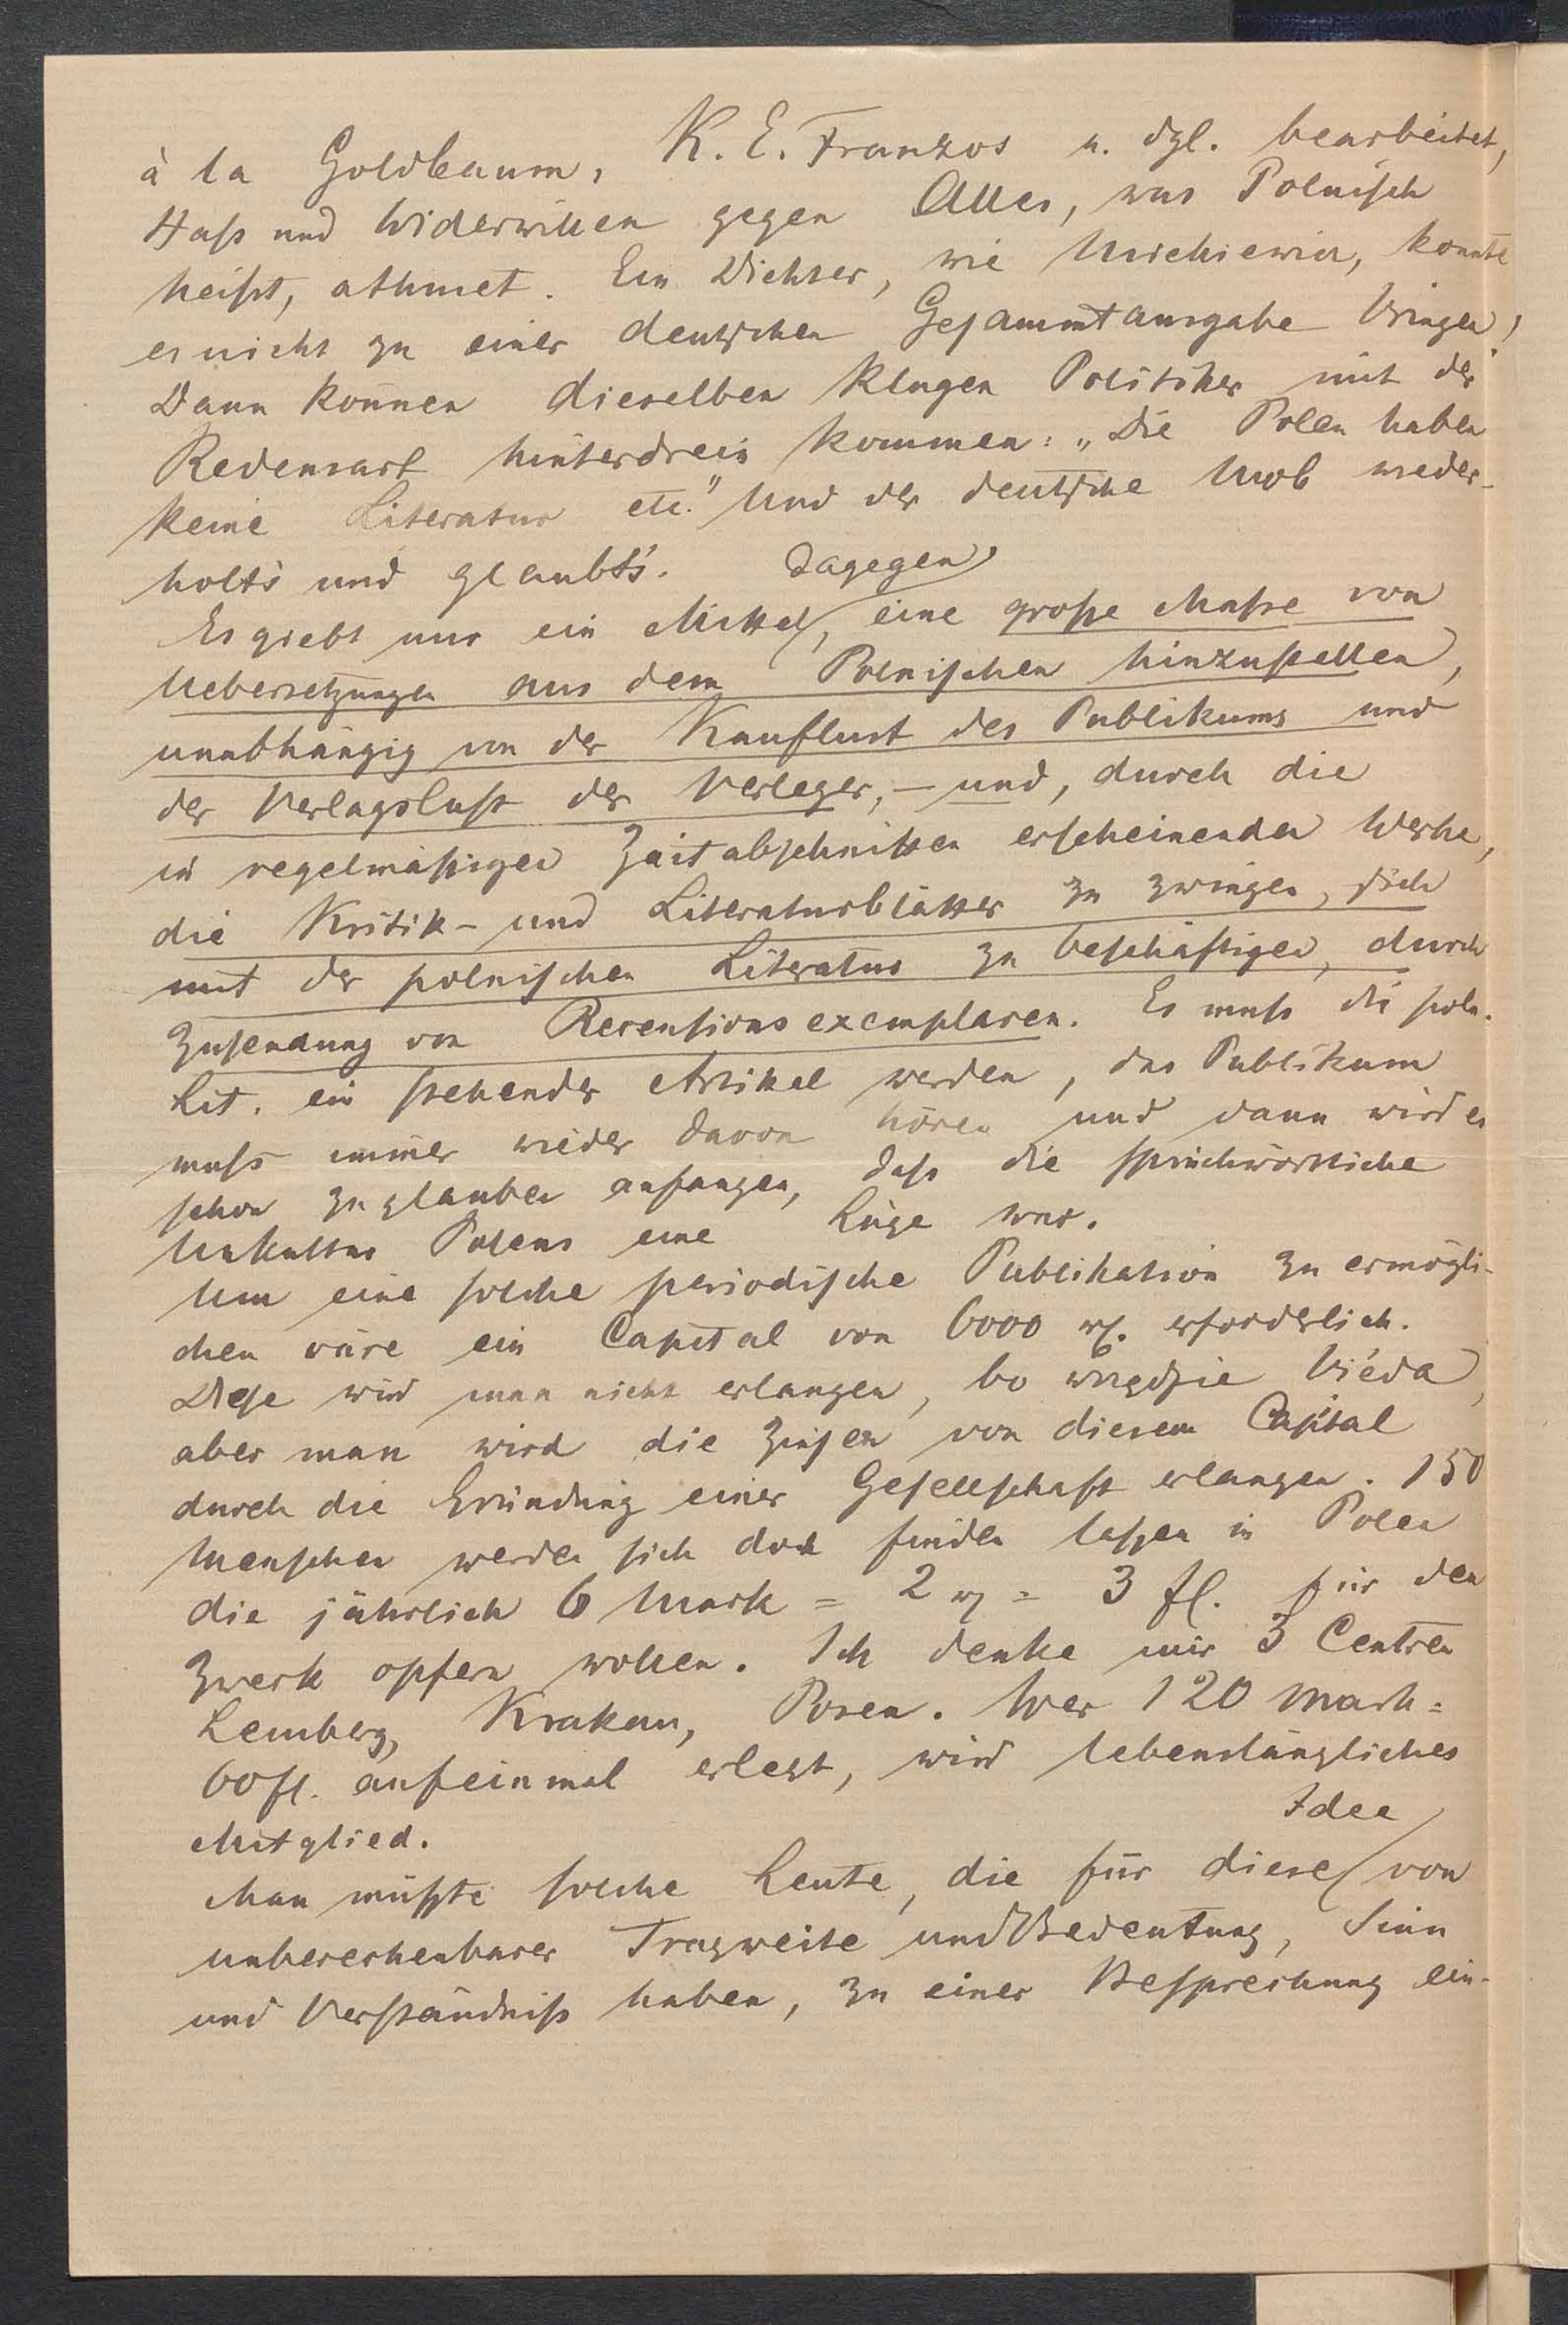 à la Goldbaum, K. E. Franzos u. dgl. bearbeitet,
Haß und Widerwillen gegen Alles, was Polnisch
heißt, athmet. Ein Dichter, wie Mickiewicz, konnte
es nicht zu einer deutschen Gesammtausgabe bringen!
Dann können dieselben klugen Politiker mit der
Redensart hinterdrein kommen: „Die Polen haben
keine Literatur etc." Und der deutsche Mob wieder-
holt's und glaubt's.
Es giebt nur ein Mittel dagegen, eine große Maße von
Uebersetzungen aus dem Polnischen hinzustellen,
unabhängig von der Kauflust des Publikums und
der Verlagslust der Verleger, – und, durch die
in regelmäßigen Zeitabschnitten erscheinenden Werke,
die Kritik- und Literaturblätter zu zwingen, sich
mit der polnischen Literatur zu beschäftigen, durch
Zusendung von Recensionsexemplaren. Es muß die poln.
Lit. ein stehender Artikel werden, das Publikum
muß immer wieder davon hören und dann wird es
schon zu glauben anfangen, daß die sprichwörtliche
Unkultur Polens eine Lüge war.
Um eine solche periodische Publikation zu ermögli-
chen wäre ein Capital von 6000 erforderlich.
Diese wird man nicht erlangen, bo wszędzie biéda,
aber man wird die Zinsen von diesem Capital
durch die Gründung einer Gesellschaft erlangen. 150
Menschen werden sich doch finden laßen in Polen
die jährlich 6 Mark = 2 = 3 fl. für den
Zweck opfern wollen. Ich denke mir 3 Centren
Lemberg, Krakau, Posen. Wer 120 Mark =
60 fl. auf einmal erlegt, wird lebenslängliches
Mitglied.
Man müßte solche Leute, die für diese Idee von
unberechenbarer Tragweite und Bedeutung, Sinn
und Verständniß haben, zu einer Besprechung ein-